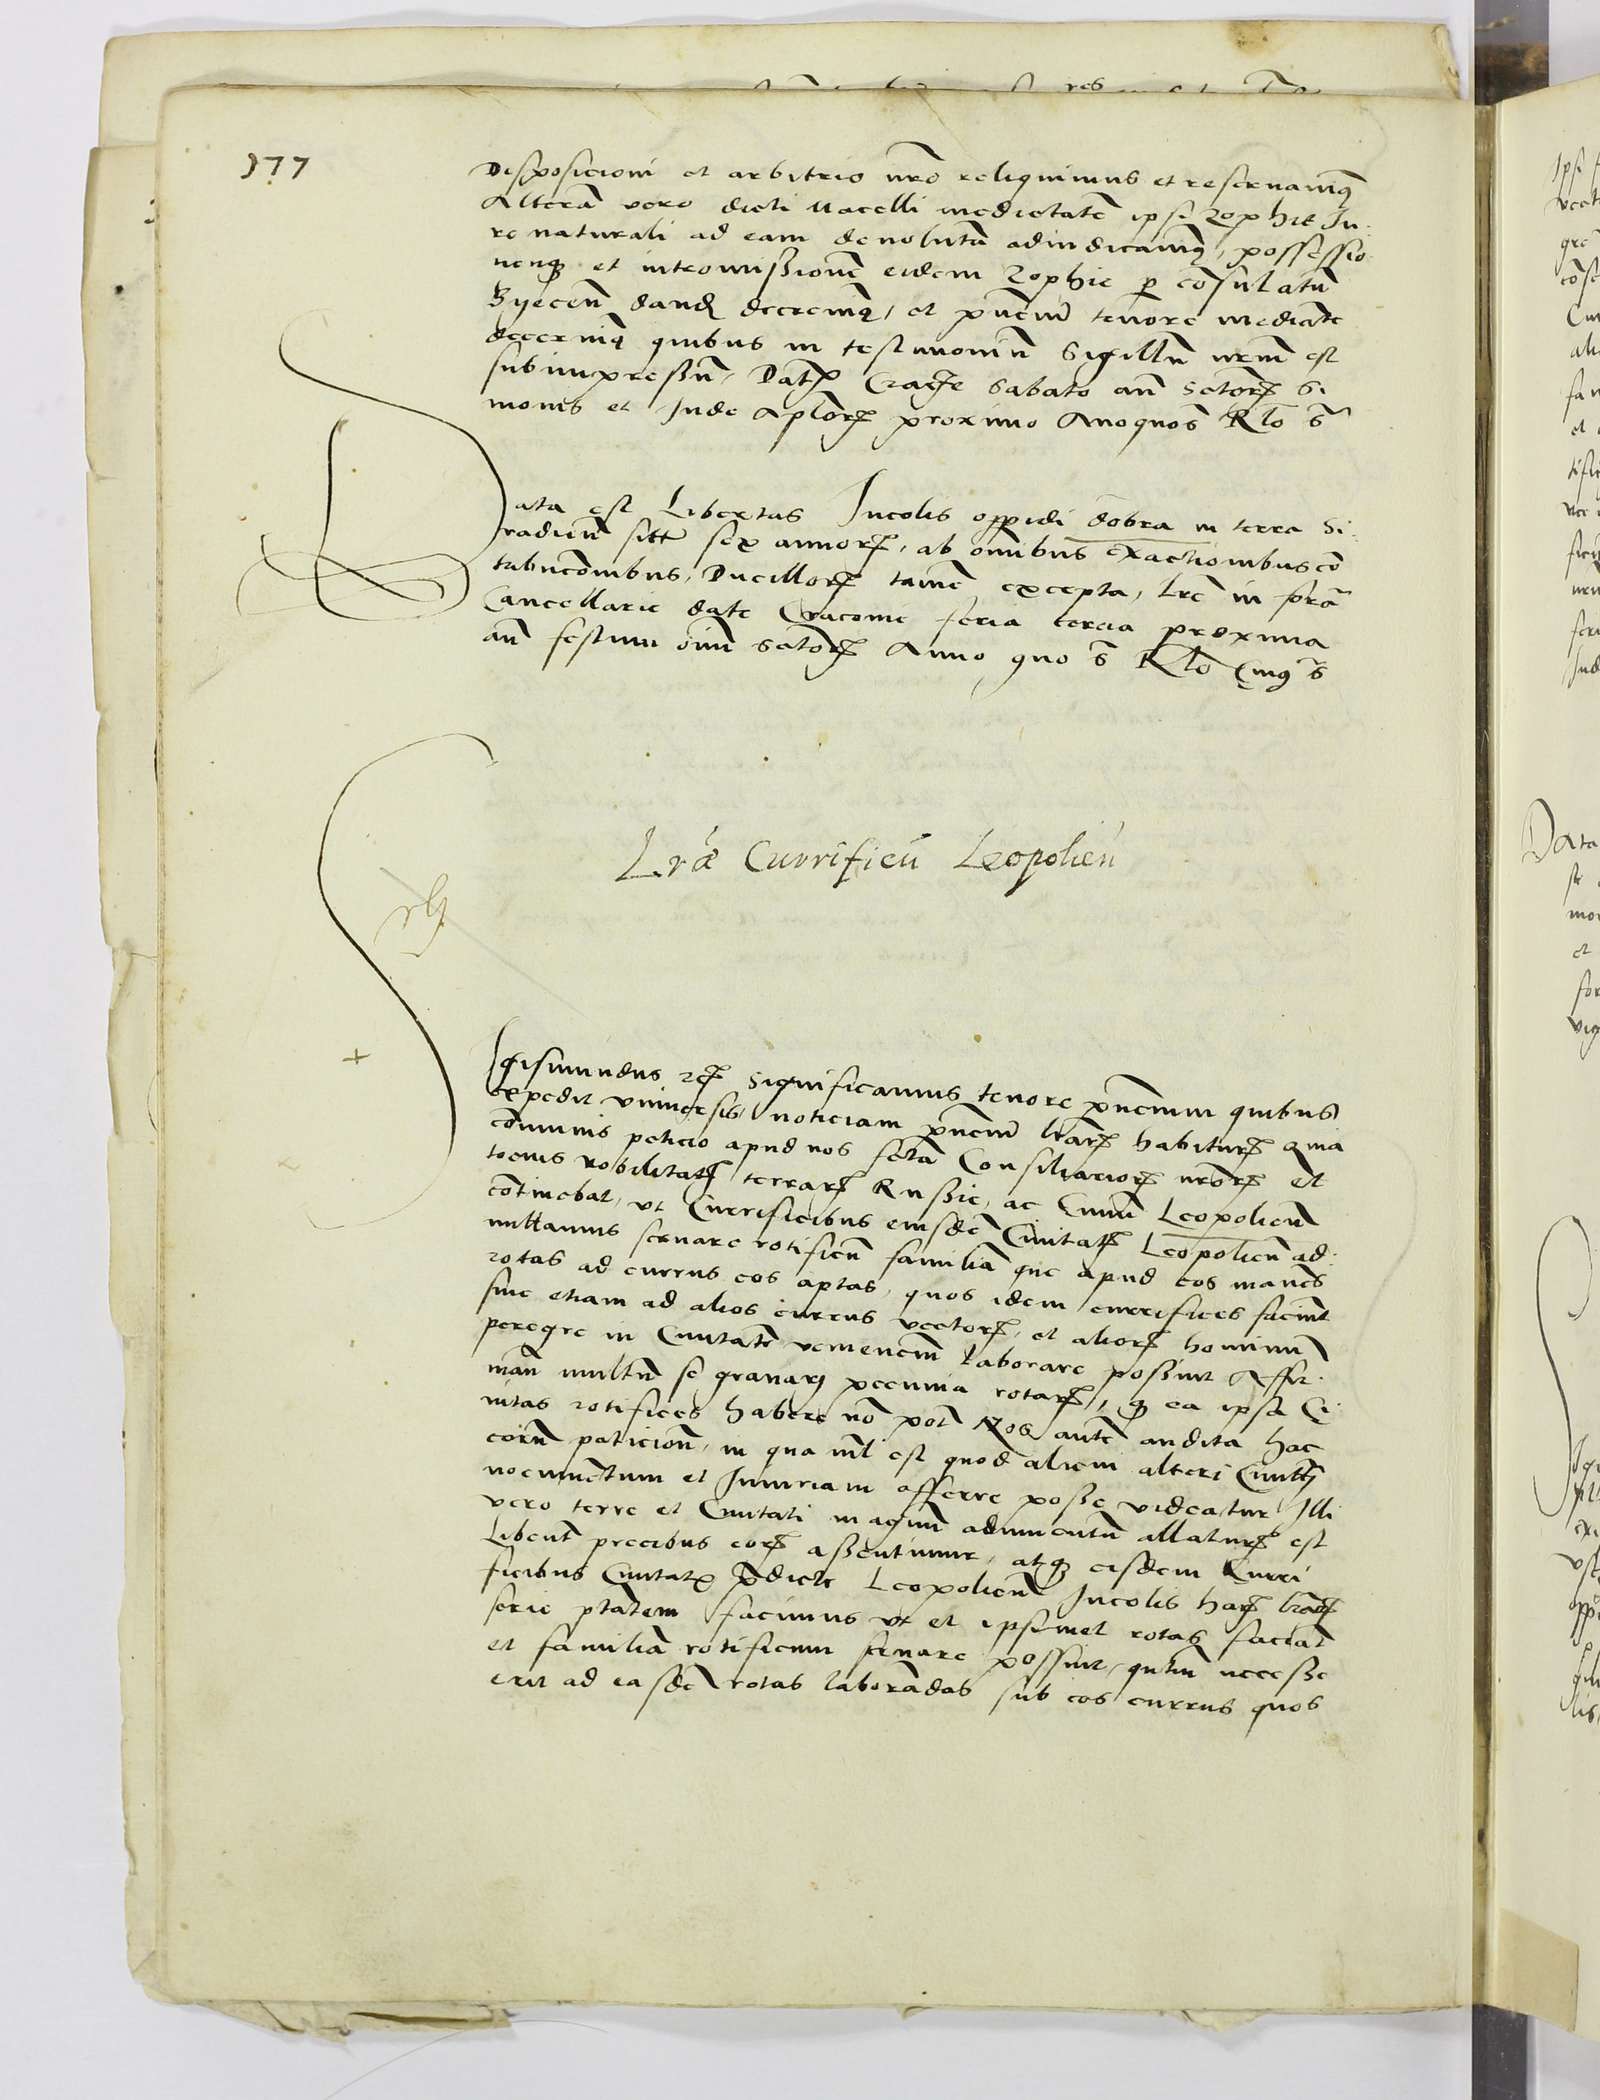 377
Disposicioni et arbitrio nro reliquimus et reservamq
Alteram vero dicti Macelli medietatem ipsi Zophie Ju:
re naturali ad eam devolutam adiudicamq, possessio
nemq et intromissionem eidem Zophie p consulatum
Byecen dand decrevimq, et pntium tenore mediante
decernimq quibus in testimonium Sigillum nrum est
subimpressum, Datum Cracovie Sabato an sctorum Si
monis et Jude Aplorum proximo Anno quo s Rto s
Data est Libertas Incolis oppidi dobra in terra Si:
radien siti sex annorum, ab omnibus exactionibus con
tributionibus, Ducillorum tamen excepta, lre in forma
Cancellarie date Cracovie feria tercia proxima
an festum oim sctorum Anno quo s Rto
Lræ Currificū Leopolien
Sgismundus Significamus tenore pntium quibus
expedit universis, noticiam pntium lrarum habiturum quia
communis peticio apud nos facta Consiliariorum nrorum et
tocius nobilitatis terrarum Russie, ac Civium Leopolien
continebat, ut Currificibus eiusdem Civitatis Leopolien ad:
mittamus servare rotificum familiam que apud eos manens
rotas ad currus eos aptas, quos idem currifices faciunt
sive etiam ad alios currus vectorum, et aliorum hominum
peregre in Civitatem venientium laborare possint Affir:
man multum se gravari pecunia rotarum, q ea ipsa Ci:
vitas rotifices habere non potest Nos autem audita hac
eorum peticione, in qua nihil est quod alicui alteri Civitati
nocumentum et Iniuriam afferre posse videatur Illi
vero terre et Civitati magnum adiumentum allaturum est
Libenter precibus eorum assentimur, atq eisdem Curri
ficibus Civitatis pdicte Leopolien Incolis harum lrarum
serie ptatem facimus ut et ipsimet rotas faciant
et familiam rotificum servare possint, quantum necesse
erit ad easdem rotas laborandas sub eos currus quos